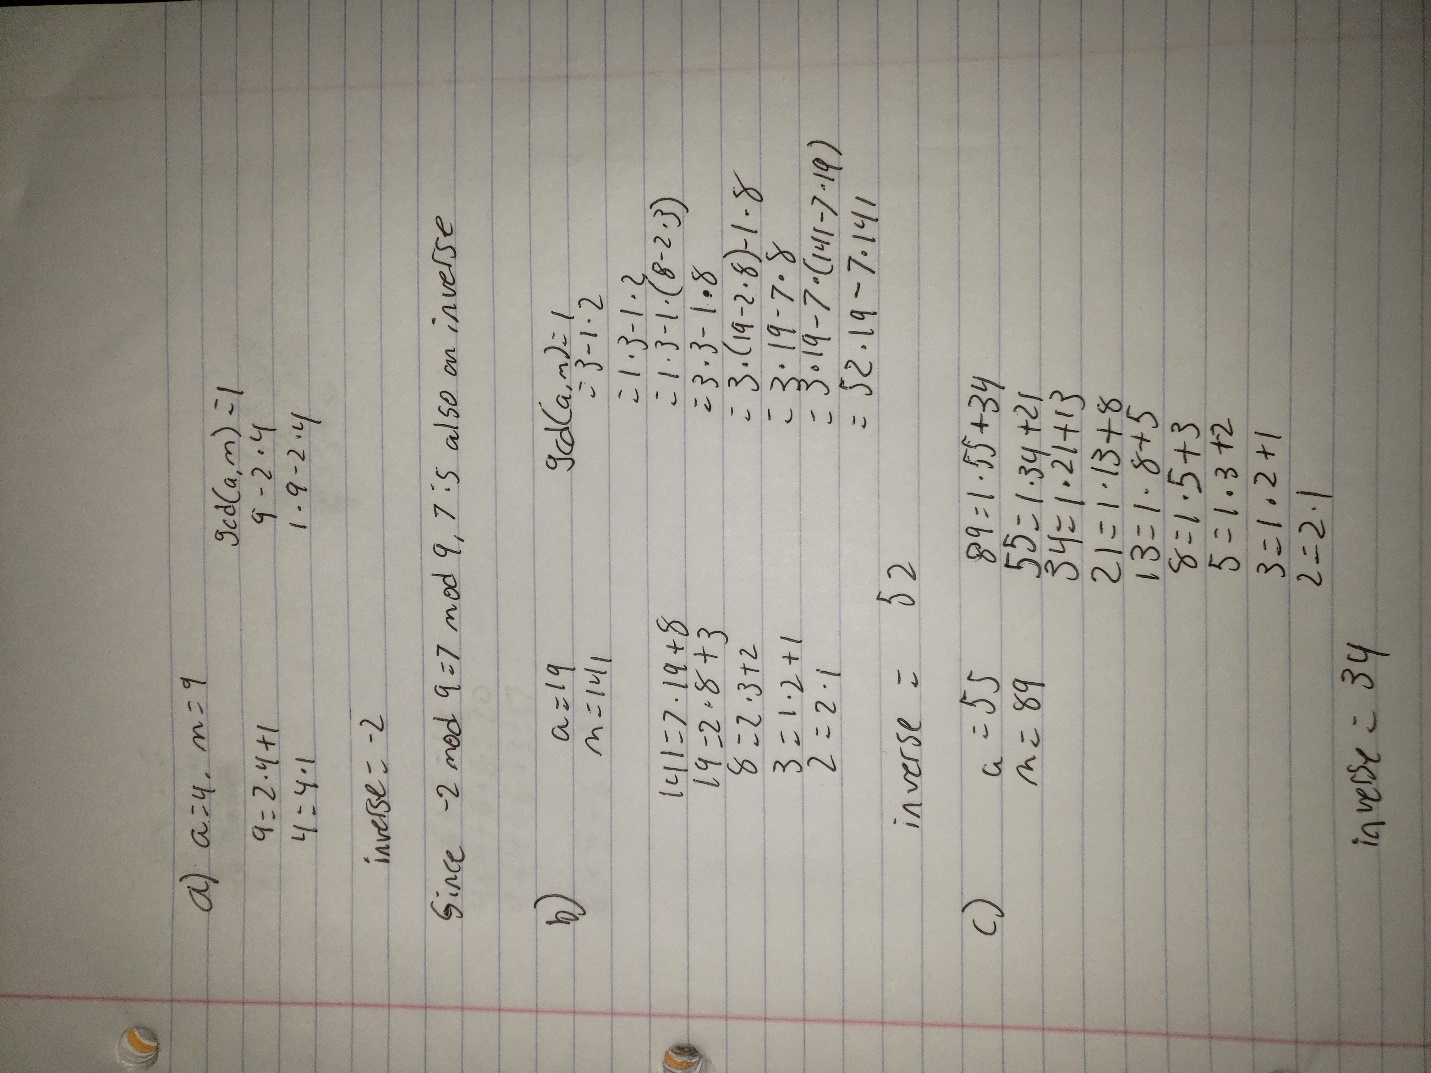 a) a=4, m=9
gcd(a,m)=1
9=2·4+1
9-2·4
4=4·1
1·9-2·4
inverse=-2
Since -2 mod 9=7 mod 9, 7 is also an inverse
b) a=19
m=141
gcd(a,m)=1
=3-1·2
141=7·19+8
19=2·8+3
8=2·3+2
3=1·2+1
2=2·1
=1·3-1·2
=1·3-1·(8-2·3)
=3·3-1·8
=3·(19-2·8)-1·8
=3·19-7·8
=3·19-7·(141-7·19)
=52·19-7·141
inverse = 52
c) a=55
m=89
89=1·55+34
55=1·34+21
34=1·21+13
21=1·13+8
13=1·8+5
8=1·5+3
5=1·3+2
3=1·2+1
2=2·1
inverse=34